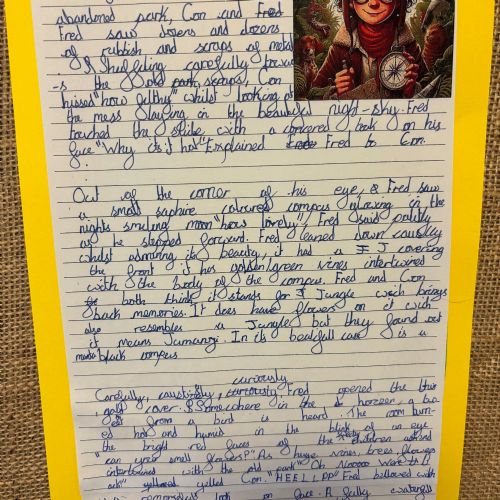 abandoned park, Con and Fred
Fred saw dozens and dozens
of rubbish and scraps of metal
Shuffling carefully towar
s the old park, scraps, Con
hissed "how filthy" whilst looking at
the mess laying in the beautiful night-sky. Fred
touched the slide with a look on his
face "Why is it hot" Explained Fred to Con.
Out of the corner of his eye, Fred saw
a small saphire coloured compus glowing in the
nights smiling moon "how lovely" Fred said politly
as he stepped forward. Fred leaned down causiusly
whilst admiring its beauty, it had a J covering
the front it has golden/green vines intertwined
with the body of the compus. Fred and Con
both think it stands for Jungle wich brings
back memories. It does have flowers on it wich
also resembles a Jungle but they found out
it means Jumanji. In its case is a
black compus
curiously
Carefully, Fred opened the thin
gold cover. Somewhere in the a
from a bird is heard. The room burn-
ed hot and humid in the blink of an eye
the bright red faces of the children asked
"can you smell flowers?" As huge vines, trees, flowers
intertwined with the old park "Oh Nooooo were th
yelled Con. "HEELLPP" Fred bellowed with
look on face. A